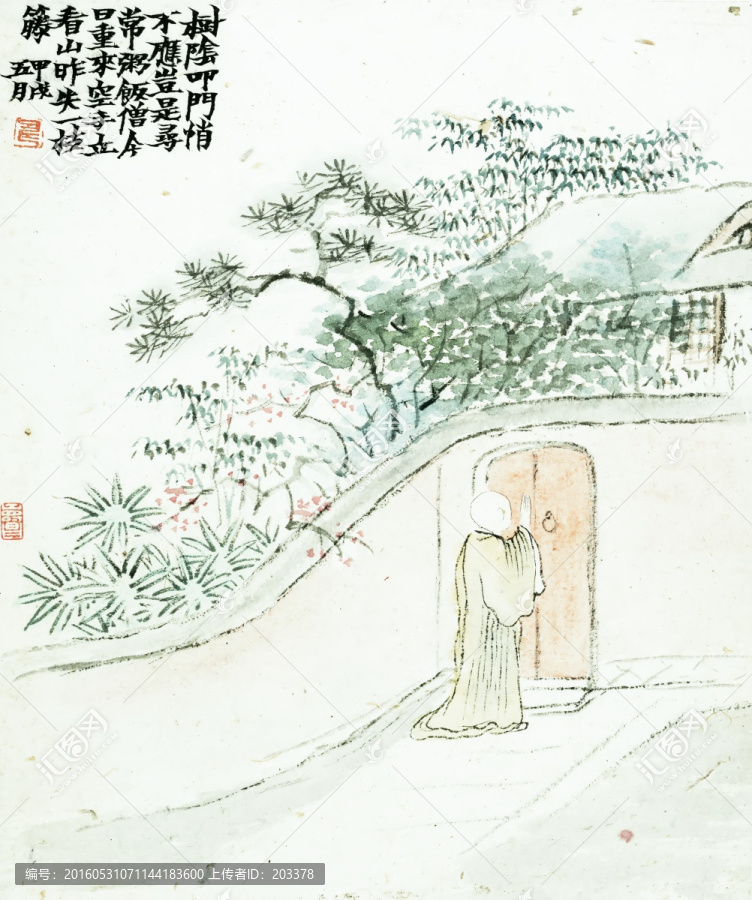 樹陰叩門悄
不應豈是尋
常粥飯僧今
日重來空寺立
看山昨失一枝
籐 甲戌
五月
编号: 20160531071144183600 上传者ID: 203378
汇图网
www.huitu.com